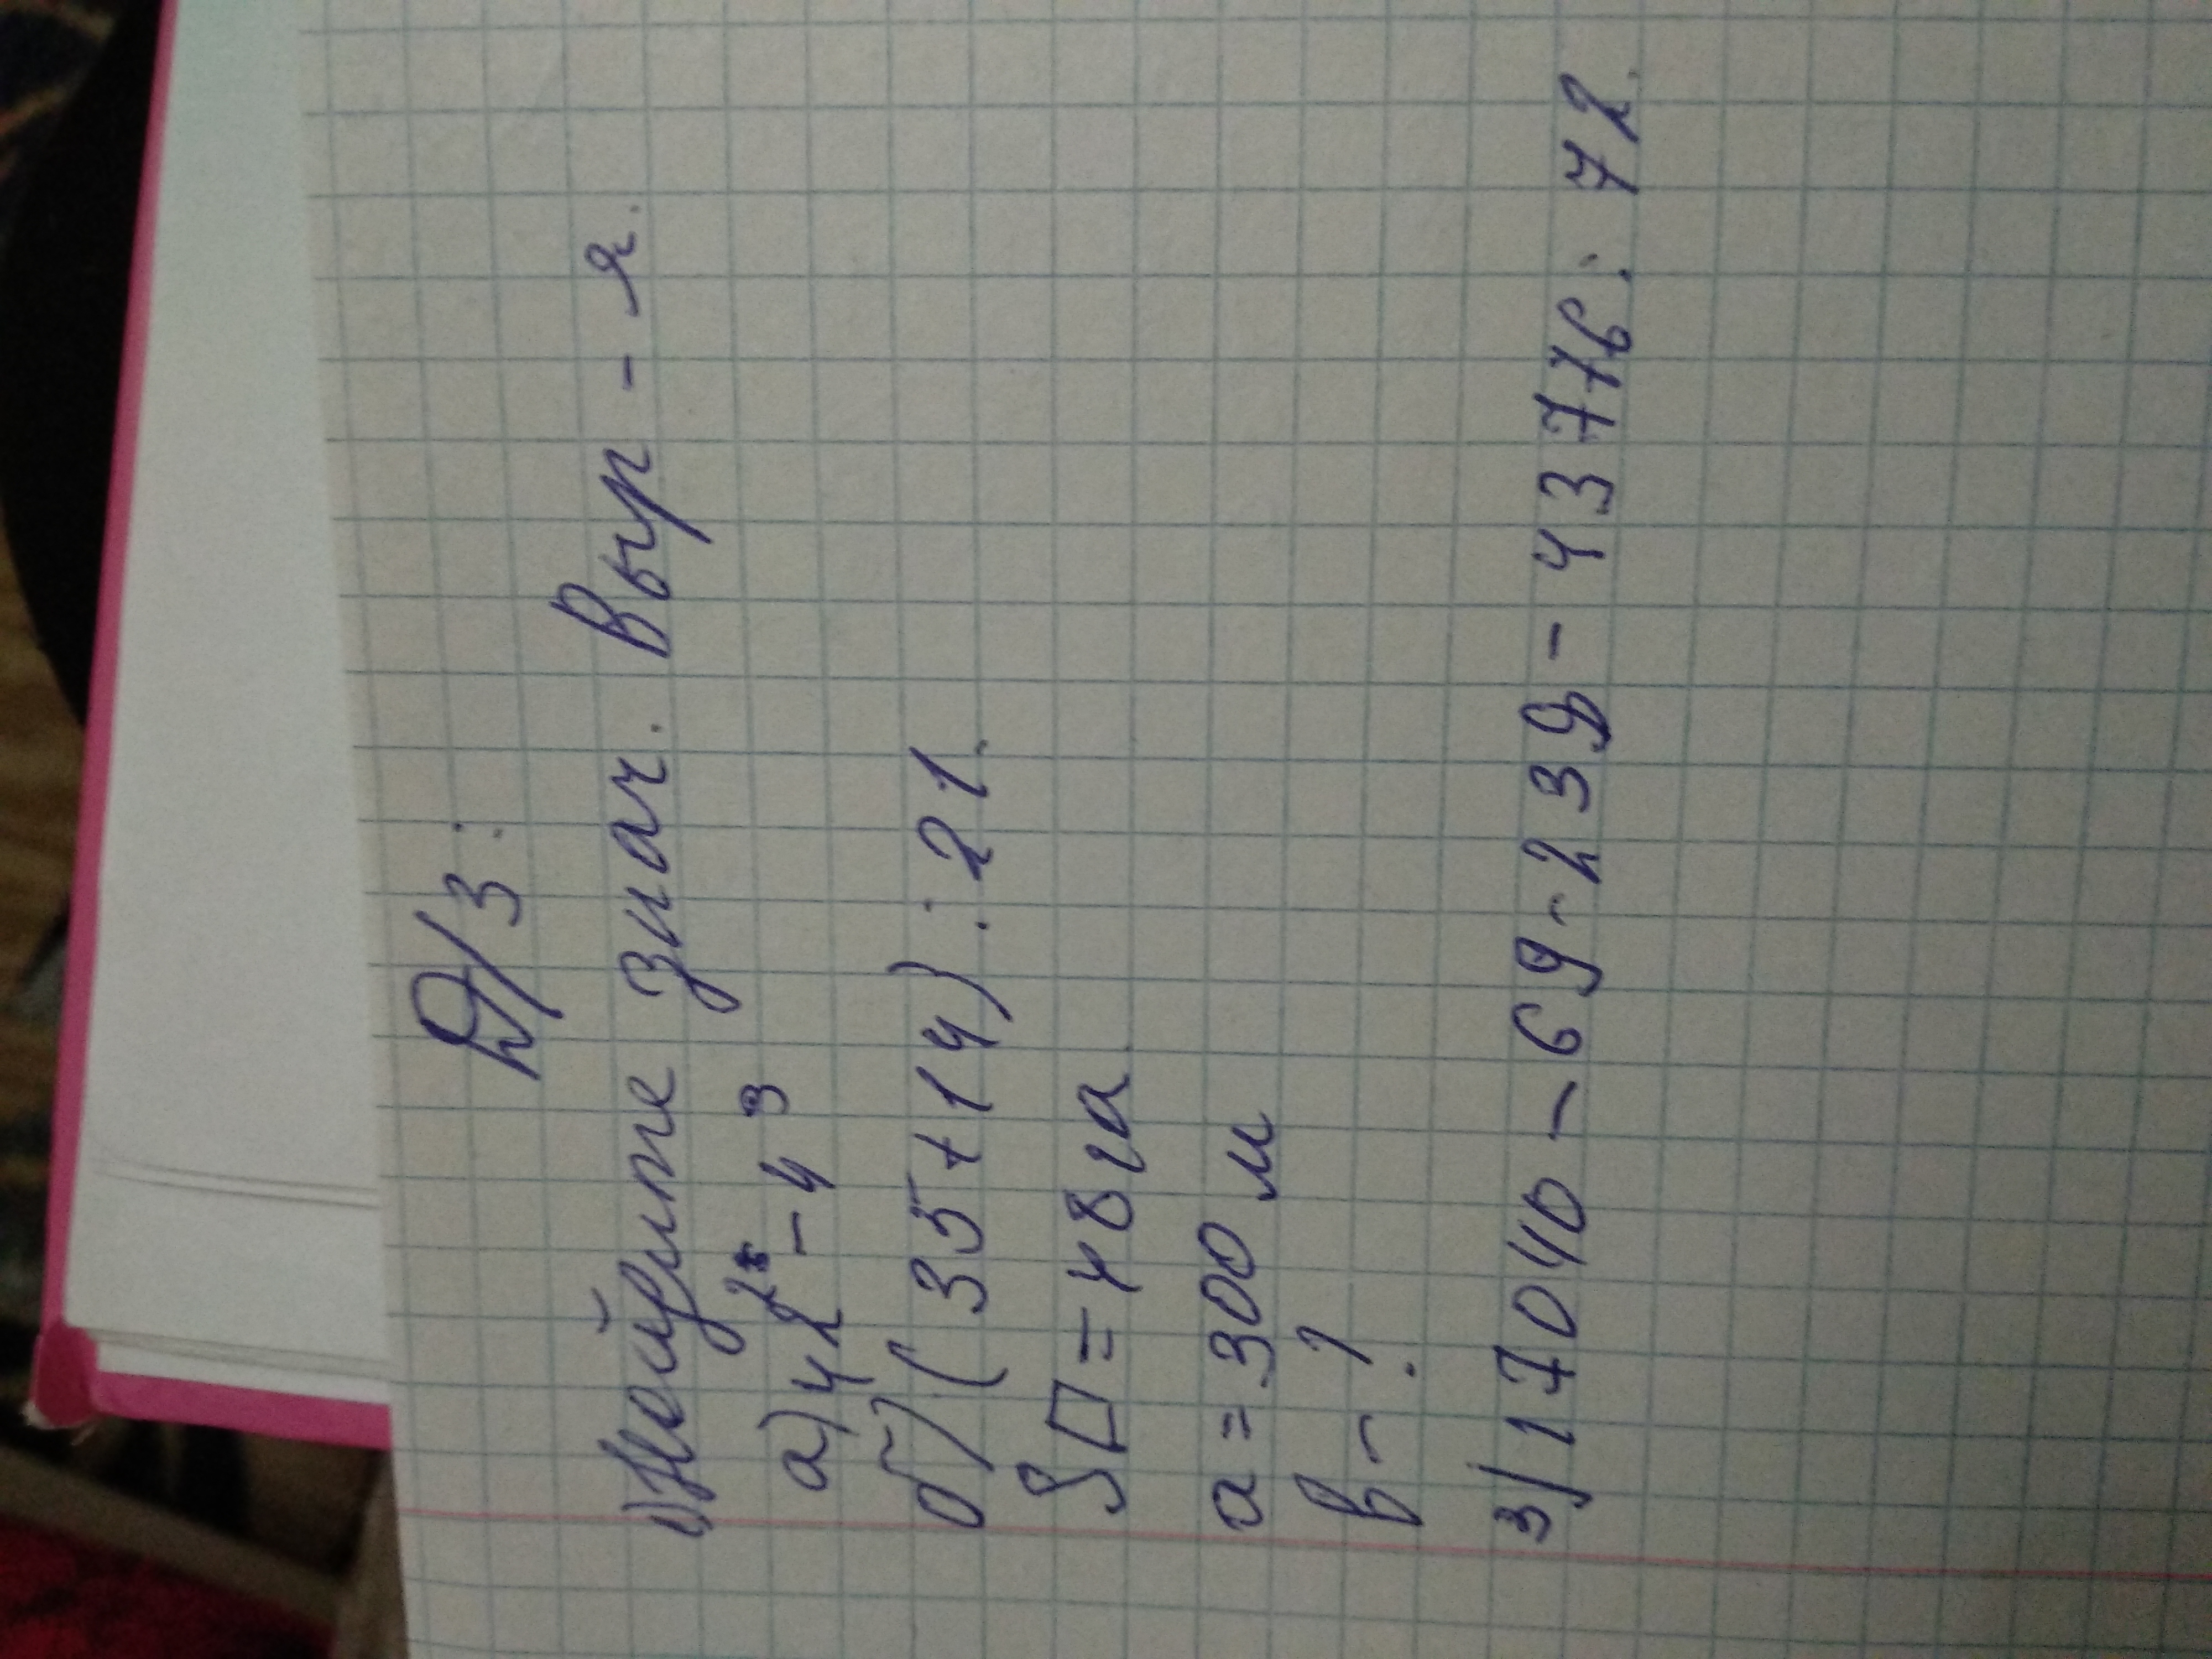 Д/З:
1) Найдите знач. Выр-я.
а) 42² - 4³
б) (35+14):21.
S▭=48га
а=300м
в-?
3) 17040-69-239-43776:72.